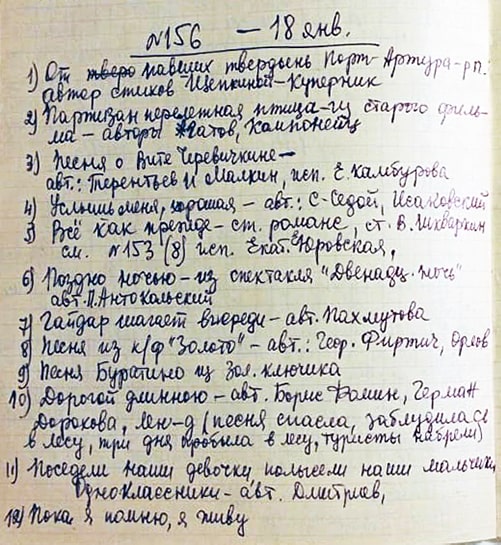 №156 – 18 янв.
1) От тверо павших твердынь Порт-Артура – рп.
автор стихов Щепкиной-Куперник
2) Партизан перелетная птица – из старого филь-
ма – авторы Агатов, Компонеец
3) Песня о Вите Черевичкине –
авт.: Терентьев и Малкин, исп. Е. Камбурова
4) Услышь меня, хорошая – авт.: С-Седой, Исаковский
5) Всё как прежде – ст. романс, ст. В. Шкваркин
см. №153 (8) исп. Екат. Юровская,
6) Поздно ночью – из спектакля "Двенадц. ночь"
авт. П. Антокольский
7) Гайдар шагает впереди – авт. Пахмутова
8) Песня из к/ф "Золото" – авт.: Геор. Фиртич, Орлов
9) Песня Буратино из Зол. ключика
10) Дорогой длинною – авт. Борис Фомин, Герман
Дорохова, Лен-д (песня спасла, заблудилась
в лесу, три дня пробыла в лесу, туристы набрели)
11) Поседели наши девочки, полысели наши мальчики,
Одноклассники – авт. Дмитриев,
12) Пока я помню, я живу